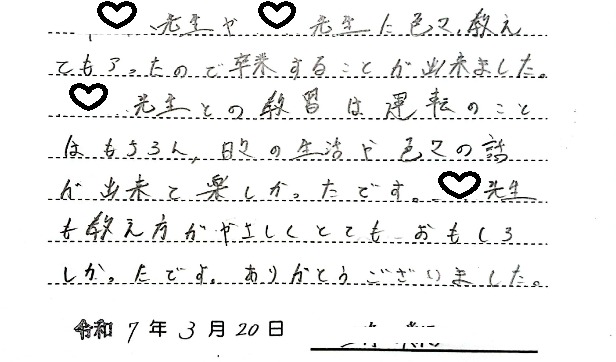 先生や 先生に色々教え
てもらったので卒業することが出来ました。
先生との教習は運転のこと
はもちろん、日々の生活や色々の話
が出来て楽しかったです。 先生
も教え方がやさしくとても おもしろ
しかったです。ありがとうございました。
令和 7 年 3 月 20 日